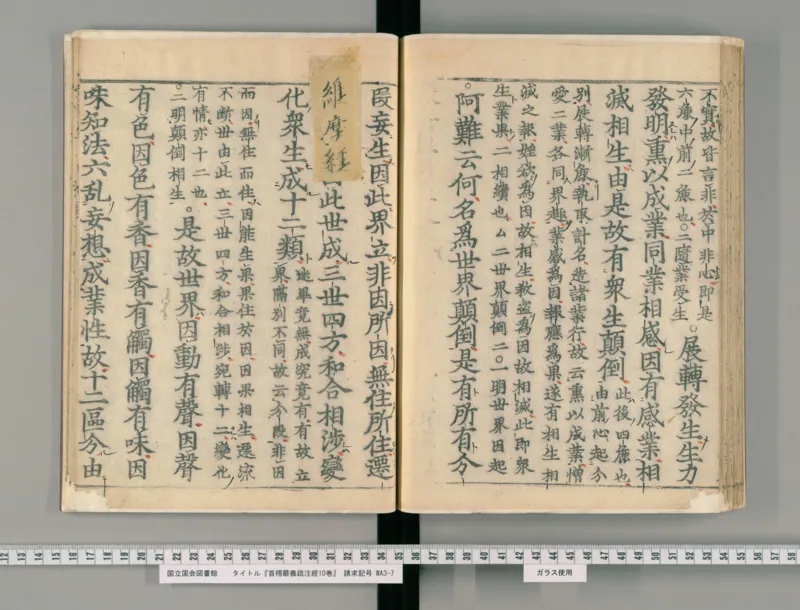 不實故皆言非於中非心即是
六麁中前二麁也○二隨業受生
○展轉發生生力
發明熏以成業同業相感因有感業相
滅相生由是故有衆生顛倒
此後四麁也
由前心起分
別展轉漸麁執取計名造諸業行故云熏以成業憎
愛二業各同界趣業感為因報應為果遂有相生相
滅之報婬欲為因故相生殺盗為因故相滅此即衆
生業果二相續也△二世界顛倒二○一明世界因起
○阿難云何名爲世界顛倒是有所有分
段妄生因此界立非因所因無住所住遷
維摩經
因此世成三世四方和合相渉變
化衆生成十二類
迷畢竟無成究竟有有故立
界隔別不同故云分段非因
而因無住而住因能生果果住於因因果相生遷流
不断世由此立三世四方和合相渉宛轉十二變化
有情亦十二也
○二明顛倒相生
○是故世界因動有聲因聲
有色因色有香因香有觸因觸有味因
味知法六乱妄想成業性故十二區分由
国立国会図書館 タイトル『首楞嚴義疏注經10巻』 請求記号 WA3-7
ガラス使用